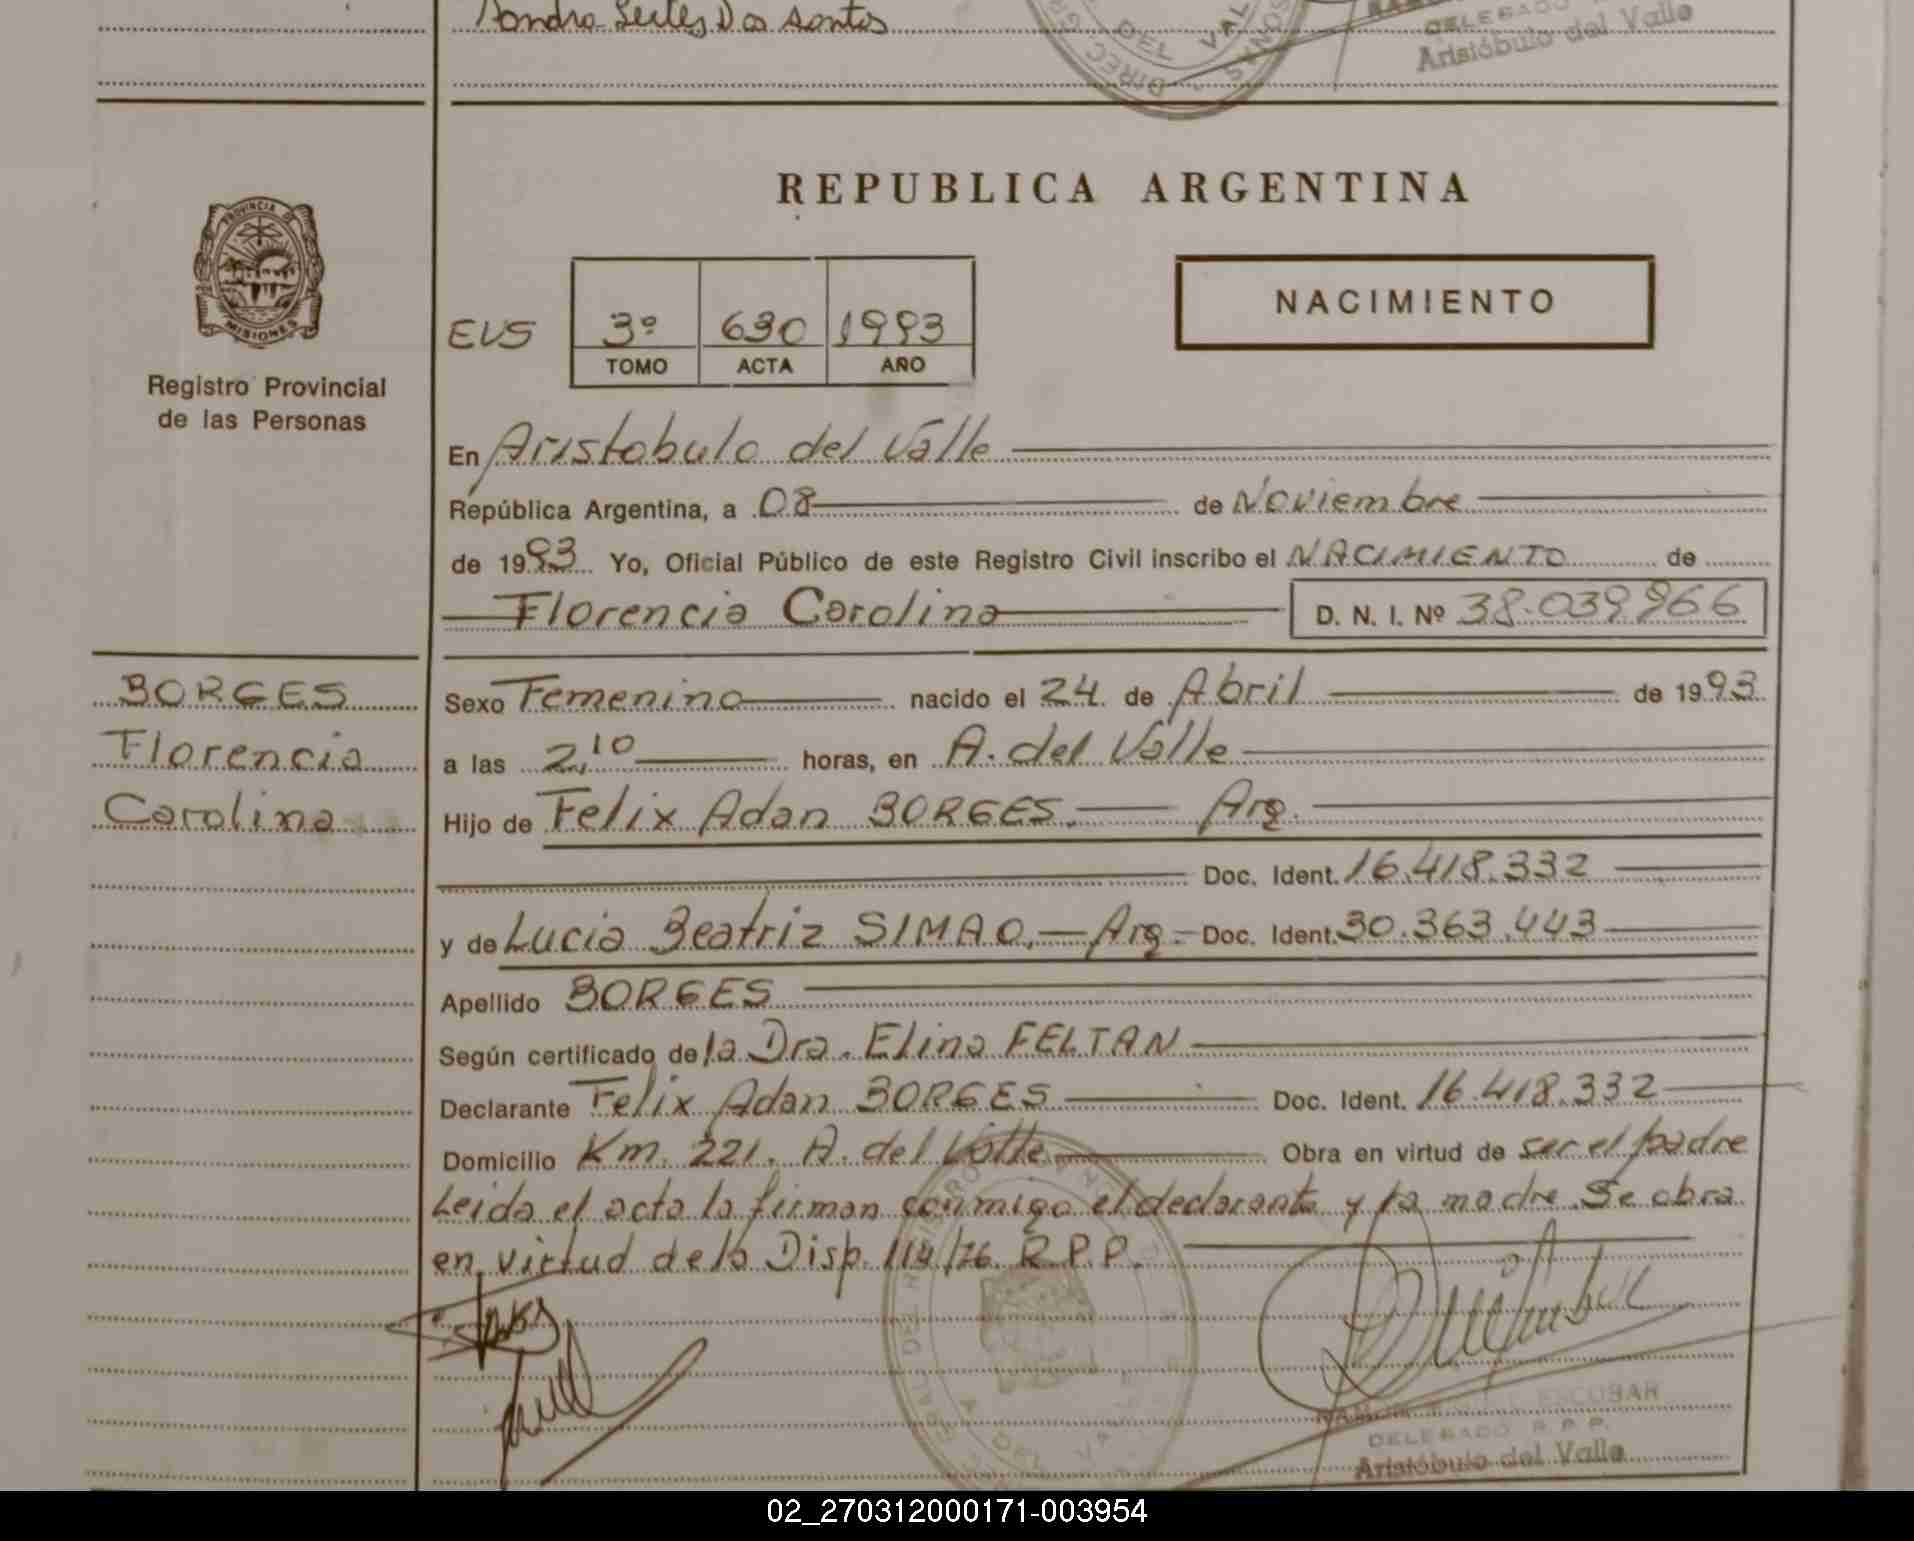 Sandra Leites Dos Santos
DEL VAL
DIREC
DELEGADO
Aristóbulo del Valle
REPUBLICA ARGENTINA
PROVINCIA DE
MISIONES
Registro Provincial
de las Personas
NACIMIENTO
EVS 3º 630 1993
TOMO ACTA AÑO
En Aristobulo del Valle
República Argentina, a 08 de Noviembre
de 1993 Yo, Oficial Público de este Registro Civil inscribo el NACIMIENTO de
Florencia Carolina D. N. I. Nº 38.039.966
BORGES
Florencia
Carolina
Sexo Femenino nacido el 24 de Abril de 1993
a las 2,10 horas, en A. del Valle
Hijo de Felix Adan BORGES. Arg.
Doc. Ident. 16.418.332
y de Lucia Beatriz SIMAO.- Arg.- Doc. Ident. 30.363.443
Apellido BORGES
Según certificado de la Dra. Elina FELTAN
Declarante Felix Adan BORGES Doc. Ident. 16.418.332
Domicilio Km. 221. A. del Valle Obra en virtud de ser el padre
Leida el acta la firman conmigo el declarante y la madre. Se obra
en virtud de la Disp. 114/76 R.P.P.
ESCOBAR
DELEGADO R.P.P.
Aristóbulo del Valle
02_270312000171-003954